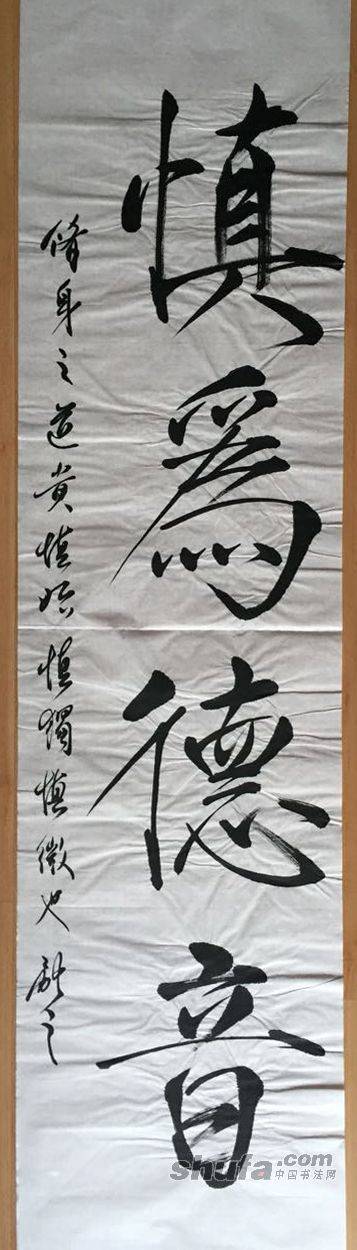 慎爲德音
脩身之道貴慎始慎獨慎微也
shufa.com
中国书法网